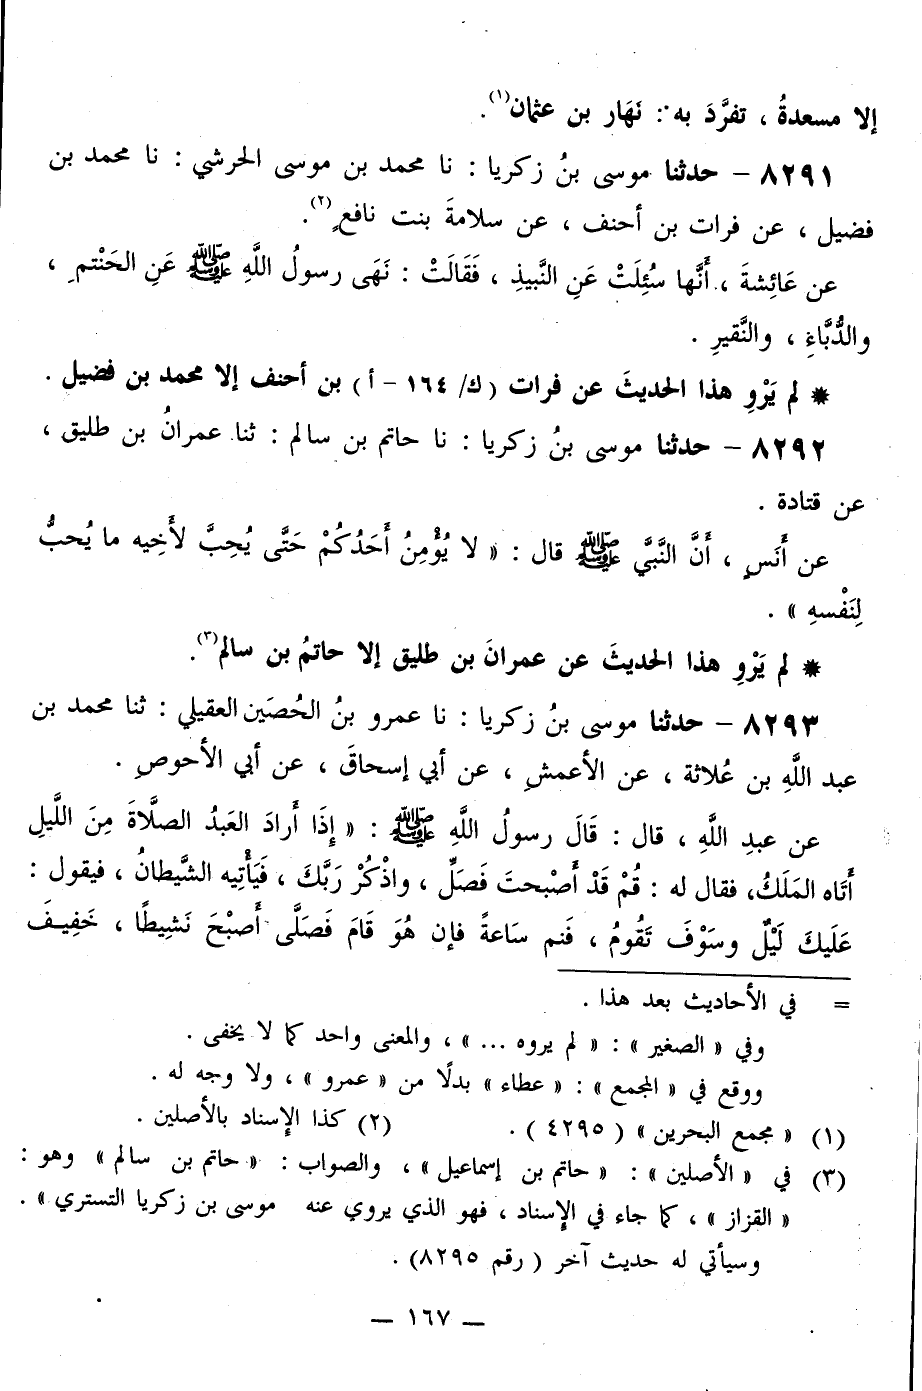 إلا مسعدةُ ، تفرَّدَ به : نَهَار بن عثمان(١).
٨٢٩١ – حدثنا موسى بنُ زكريا : نا محمد بن موسى الحرشي : نا محمد بن
فضيل ، عن فرات بن أحنف ، عن سلامةَ بنت نافعٍ(٢).
عن عَائِشةَ ، أَنَّها سُئِلَتْ عَنِ النَّبيذِ ، فَقَالَتْ : نَهَى رسولُ اللَّهِ ﷺ عَنِ الحَنْتمِ ،
والدُّبَّاءِ ، والنَّقيرِ .
* لم يَرْوِ هذا الحديثَ عن فرات ( ك/ ١٦٤ – أ ) بن أحنف إلا محمد بن فضيل .
٨٢٩٢ – حدثنا موسى بنُ زكريا : نا حاتم بن سالم : ثنا عمرانُ بن طليق ،
عن قتادة .
عن أَنَسٍ ، أَنَّ النَّبيَّ ﷺ قال : « لا يُؤْمِنُ أَحَدُكُمْ حَتَّى يُحِبَّ لأَخِيه ما يُحبُّ
لِنَفْسهِ » .
* لم يَرْوِ هذا الحديثَ عن عمرانَ بن طليق إلا حاتمُ بن سالم(٣).
٨٢٩٣ – حدثنا موسى بنُ زكريا : نا عمرو بنُ الحُصَين العقيلي : ثنا محمد بن
عبد اللَّهِ بن عُلاثة ، عن الأعمشِ ، عن أبي إسحاقَ ، عن أبي الأحوصِ .
عن عبدِ اللَّهِ ، قال : قَالَ رسولُ اللَّهِ ﷺ : « إِذَا أَرادَ العَبدُ الصلَّاةَ مِنَ اللَّيلِ
أَتَاه المَلَكُ، فقال له : قُمْ قَدْ أَصْبحتَ فَصَلِّ ، واذْكُرْ رَبَّكَ ، فَيَأْتِيه الشَّيطانُ ، فيقول :
عَلَيكَ لَيْلٌ وسَوْفَ تَقُومُ ، فَنم سَاعةً فإن هُوَ قَامَ فَصَلَّى أَصبْحَ نَشِيطًا ، خَفِيفَ
= في الأحاديث بعد هذا .
وفي « الصغير » : « لم يروه ... » ، والمعنى واحد كما لا يخفى .
ووقع في « المجمع » : « عطاء » بدلًا من « عمرو » ، ولا وجه له .
(١) « مجمع البحرين » ( ٤٢٩٥ ) . (٢) كذا الإسناد بالأصلين .
(٣) في « الأصلين » : « حاتم بن إسماعيل » ، والصواب : « حاتم بن سالم » وهو :
« القزاز » ، كما جاء في الإسناد ، فهو الذي يروي عنه موسى بن زكريا التستري » .
وسيأتي له حديث آخر ( رقم ٨٢٩٥) .
— ١٦٧ —